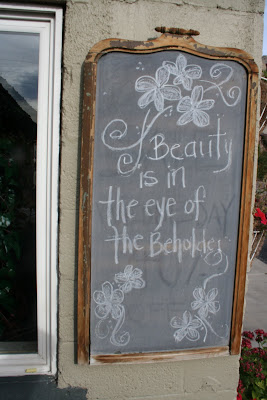 Beauty
is in
the eye of
the Beholder